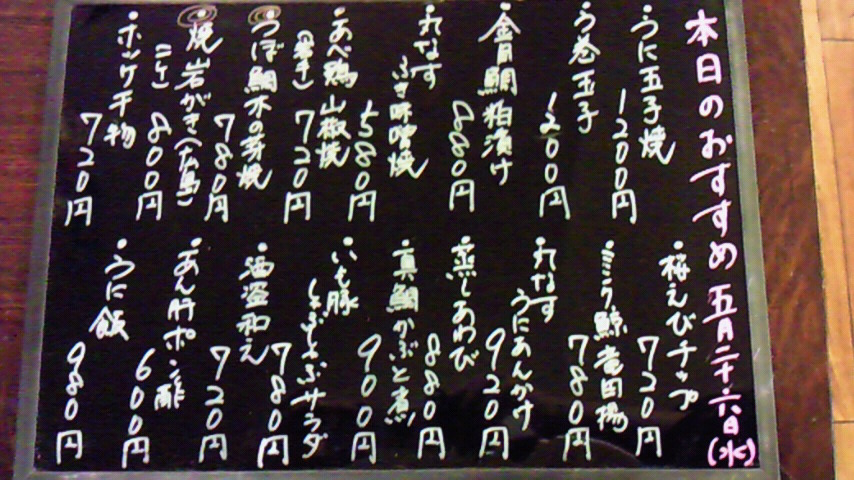 本日のおすすめ 五月二十六日(水)
・うに玉子焼
1200円
・う巻玉子
1200円
・金目鯛粕漬け
880円
・丸なす
ふき味噌焼
580円
・あべ鶏山椒焼
720円
・つぼ鯛木の芽焼
780円
・焼岩がき(広島)
(一ケ)
800円
・ホッケ干物
720円
・桜えびチップ
720円
・ミンク鯨竜田揚
780円
・丸なす
うにあんかけ
920円
・蒸しあわび
880円
・真鯛かぶと煮
900円
・いも豚
しゃぶしゃぶサラダ
780円
・酒盗和え
720円
・あん肝ポン酢
600円
・うに飯
980円